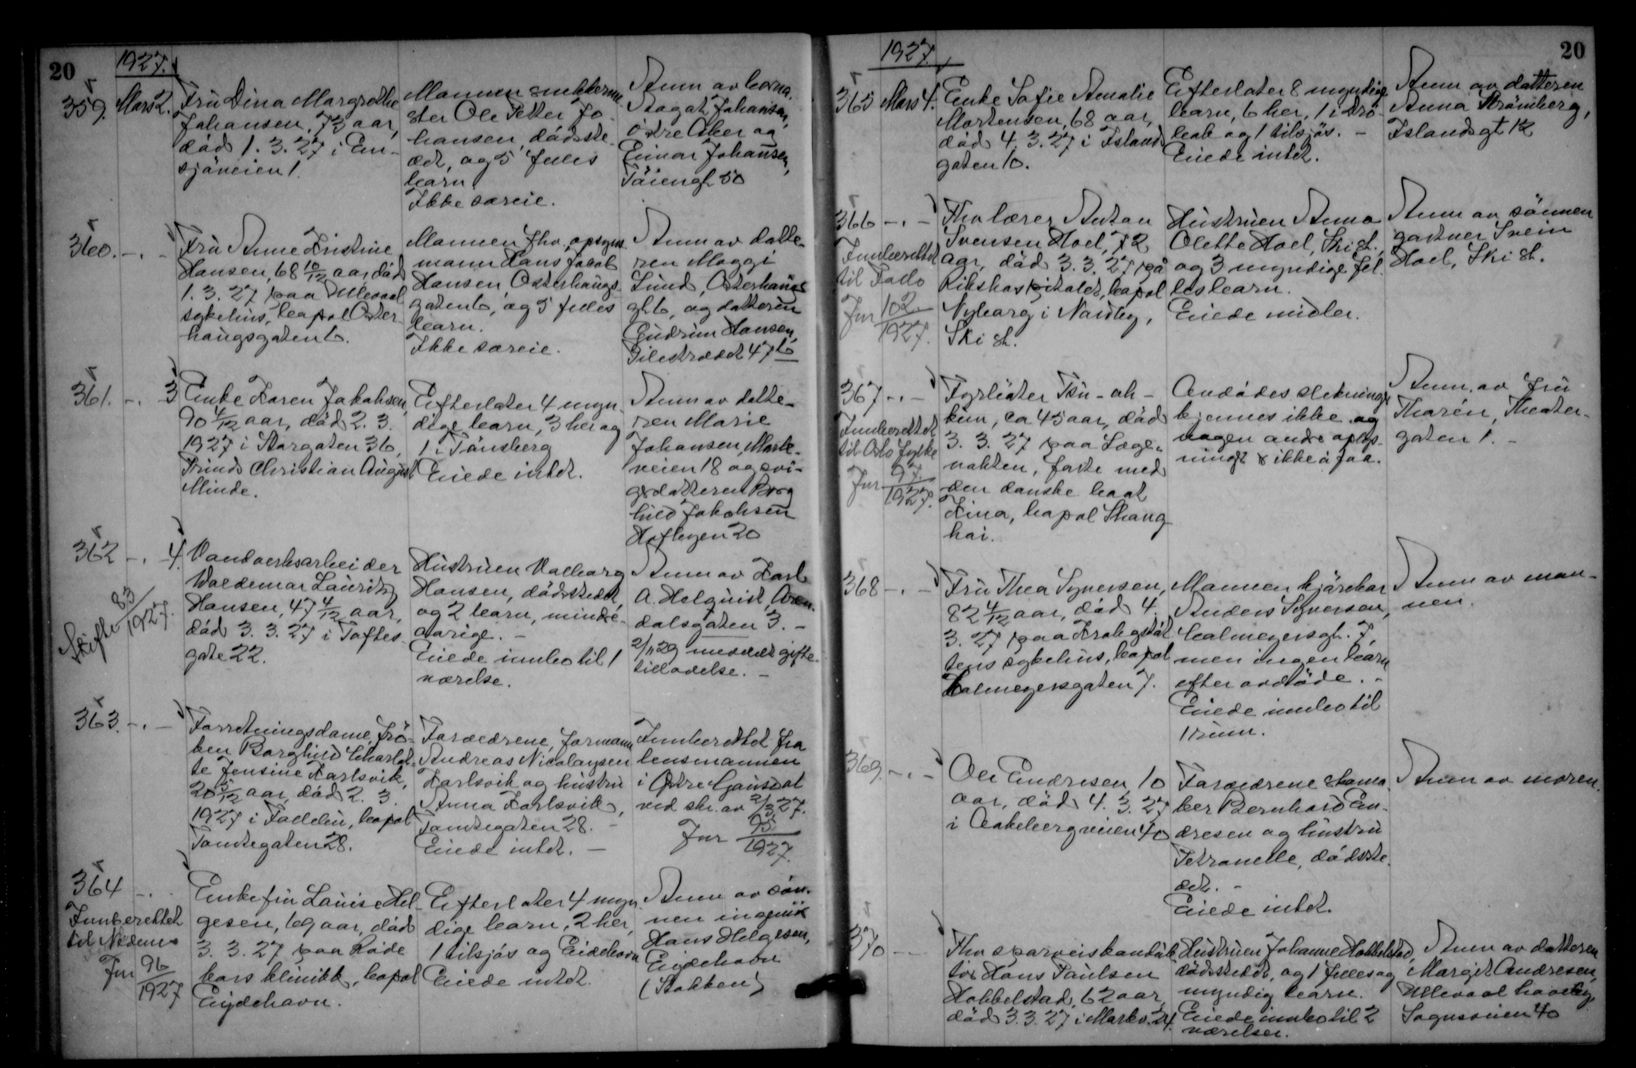 20
1927.
359. Mars 2. Fru Dina Margrethe
Johansen, 73 aar,
død 1. 3. 27 i En-
sjøveien 1.
Mannen snekkerme-
ster Ole Petter Jo-
hansen, dødsste-
det, og 5 felles
barn.
Ikke særeie.
Anm av barna
Aagot Johansen,
østre Aker og
Einar Johansen,
Tøiengt 50
360. -.- Fru Anne Kristine
Hansen, 68 10/12 aar, død
1. 3. 27 paa Ullevaal
sykehus, bopol Oster
haugsgaten 6.
Mannen fhv. opsyns
mann Hans Jakob
Hansen Osterhaugs
gaten 6, og 5 felles
barn.
Ikke særeie.
Anm av datte-
ren Maggi
Lund, Osterhaugs
gt 6, og datteren
Gudrun Hansen,
Pilestrædet 47 b
361. -. 3 Enke Karen Jakobsen,
90 4/12 aar, død 2. 3.
1927 i Storgaten 36,
Prinds Christian August
Minde.
Efterlater 4 myn-
dige barn, 3 her og
1 i Tønsberg
Eiede intet.
Anm av datte-
ren Marie
Johansen, Marke-
veien 18 og svi-
gerdatteren Borg
hild Jakobsen
Hoftegen 20
362 -. 4. Vandverksarbeider
Valdemar Lauritz
Hansen, 47 4/12 aar,
død 3. 3. 27 i Toftes
gate 22.
Skifte 83/1927.
Hustruen Valborg
Hansen, dødsstedet,
og 2 barn, minde-
aarige. -
Eiede innbo til 1
værelse.
Anm av Karl
A. Holquist, Aren-
dalsgaten 3. -
2/1 29 meddelt gifte-
tilladelse. -
363. -.- Forretningsdame, frø-
ken Borghild Charlot-
te Jensine Karlsvik,
20 3/12 aar, død 2. 3.
1927 i Follebu, bopol
Tomtegaten 28.
Forældrene, formann
Andreas Nicolaysen
Karlsvik og hustru
Anna Karlsvik,
Tomtegaten 28. -
Eiede intet. -
Innberettet fra
lensmannen
i Østre Gausdal
ved skr. av 2/3 27.
Jnr 95/1927.
364 -. Enkefru Louise Hel-
gesen, 69 aar, død
3. 3. 27 paa Røde
kors klinikk, bopol
Eydehavn.
Innberettet
til Nedenes
Jnr 96/1927
Efterlater 4 myn
dige barn, 2 her,
1 tilsjøs og Eidehavn
Eiede intet.
Anm av søn-
nen ingeniør
Hans Helgesen,
Eydehavn
(Stokken)
20
1927
365 Mars 4. Enke Sofie Amalie
Mortensen, 68 aar,
død 4. 3. 27 i Island
gaten 10.
Efterlater 8 myndige
barn, 6 her, 1 i Drø-
bak og 1 tilsjøs. -
Eiede intet.
Anm av datteren
Anna Strømberg,
Islandsgt 12
366 -.- Fhv lærer Anton
Svensen Hoel, 72
aar, død 3. 3. 27 på
Rikshospitalet, bopol
Nyborg i Nordby,
Ski st.
Innberettet
til Follo
Jnr 102/1927.
Hustruen Anna
Olette Hoel, Ski st.
og 3 myndige fel
lesbarn.
Eiede midler.
Anm av sønnen
gartner Svein
Hoel, Ski st.
367 -.- Fyrbøter Tsu-ah-
kun, ca 45 aar, død
3. 3. 27 paa Læge-
vakten, farte med
den danske baat
Kina, bopol Shang
hai.
Innberettet
til Oslo fylke
Jnr 97/1927.
Avdødes slektninger
kjennes ikke og
nogen andre oplys-
ninger ikke å faa.
Anm. av fru
Thorén, Theater-
gaten 1. -
368 -.- Fru Thea Syversen,
82 4/12 aar, død 4.
3. 27 paa Krohgstøt
tens sykehus, bopol
Calmeyersgaten 7.
Mannen kjørekar
Anders Syversen,
Calmeyersgt. 7,
men ingen barn
efter avdøde. -
Eiede innbo til
1 rum.
Anm av man-
nen.
369. -.- Ole Endresen, 10
aar, død 4. 3. 27
i Aakebergveien 40
Forældrene skoma
ker Bernhard En-
dresen og hustru
Petranelle, dødsste
det. -
Eiede intet.
Anm av moren.
370 -- Fhv sporveiskonduk
tør Hans Paulsen
Hobbelstad, 62 aar,
død 3. 3. 27 i Markv. 24
Hustruen Johanne Hobbelstad,
dødsstedet, og 1 felles og
myndig barn.
Eiede innbo til 2
værelser.
Anm av datteren
Margit Andresen,
Ullevaal haveby,
Sognsveien 40